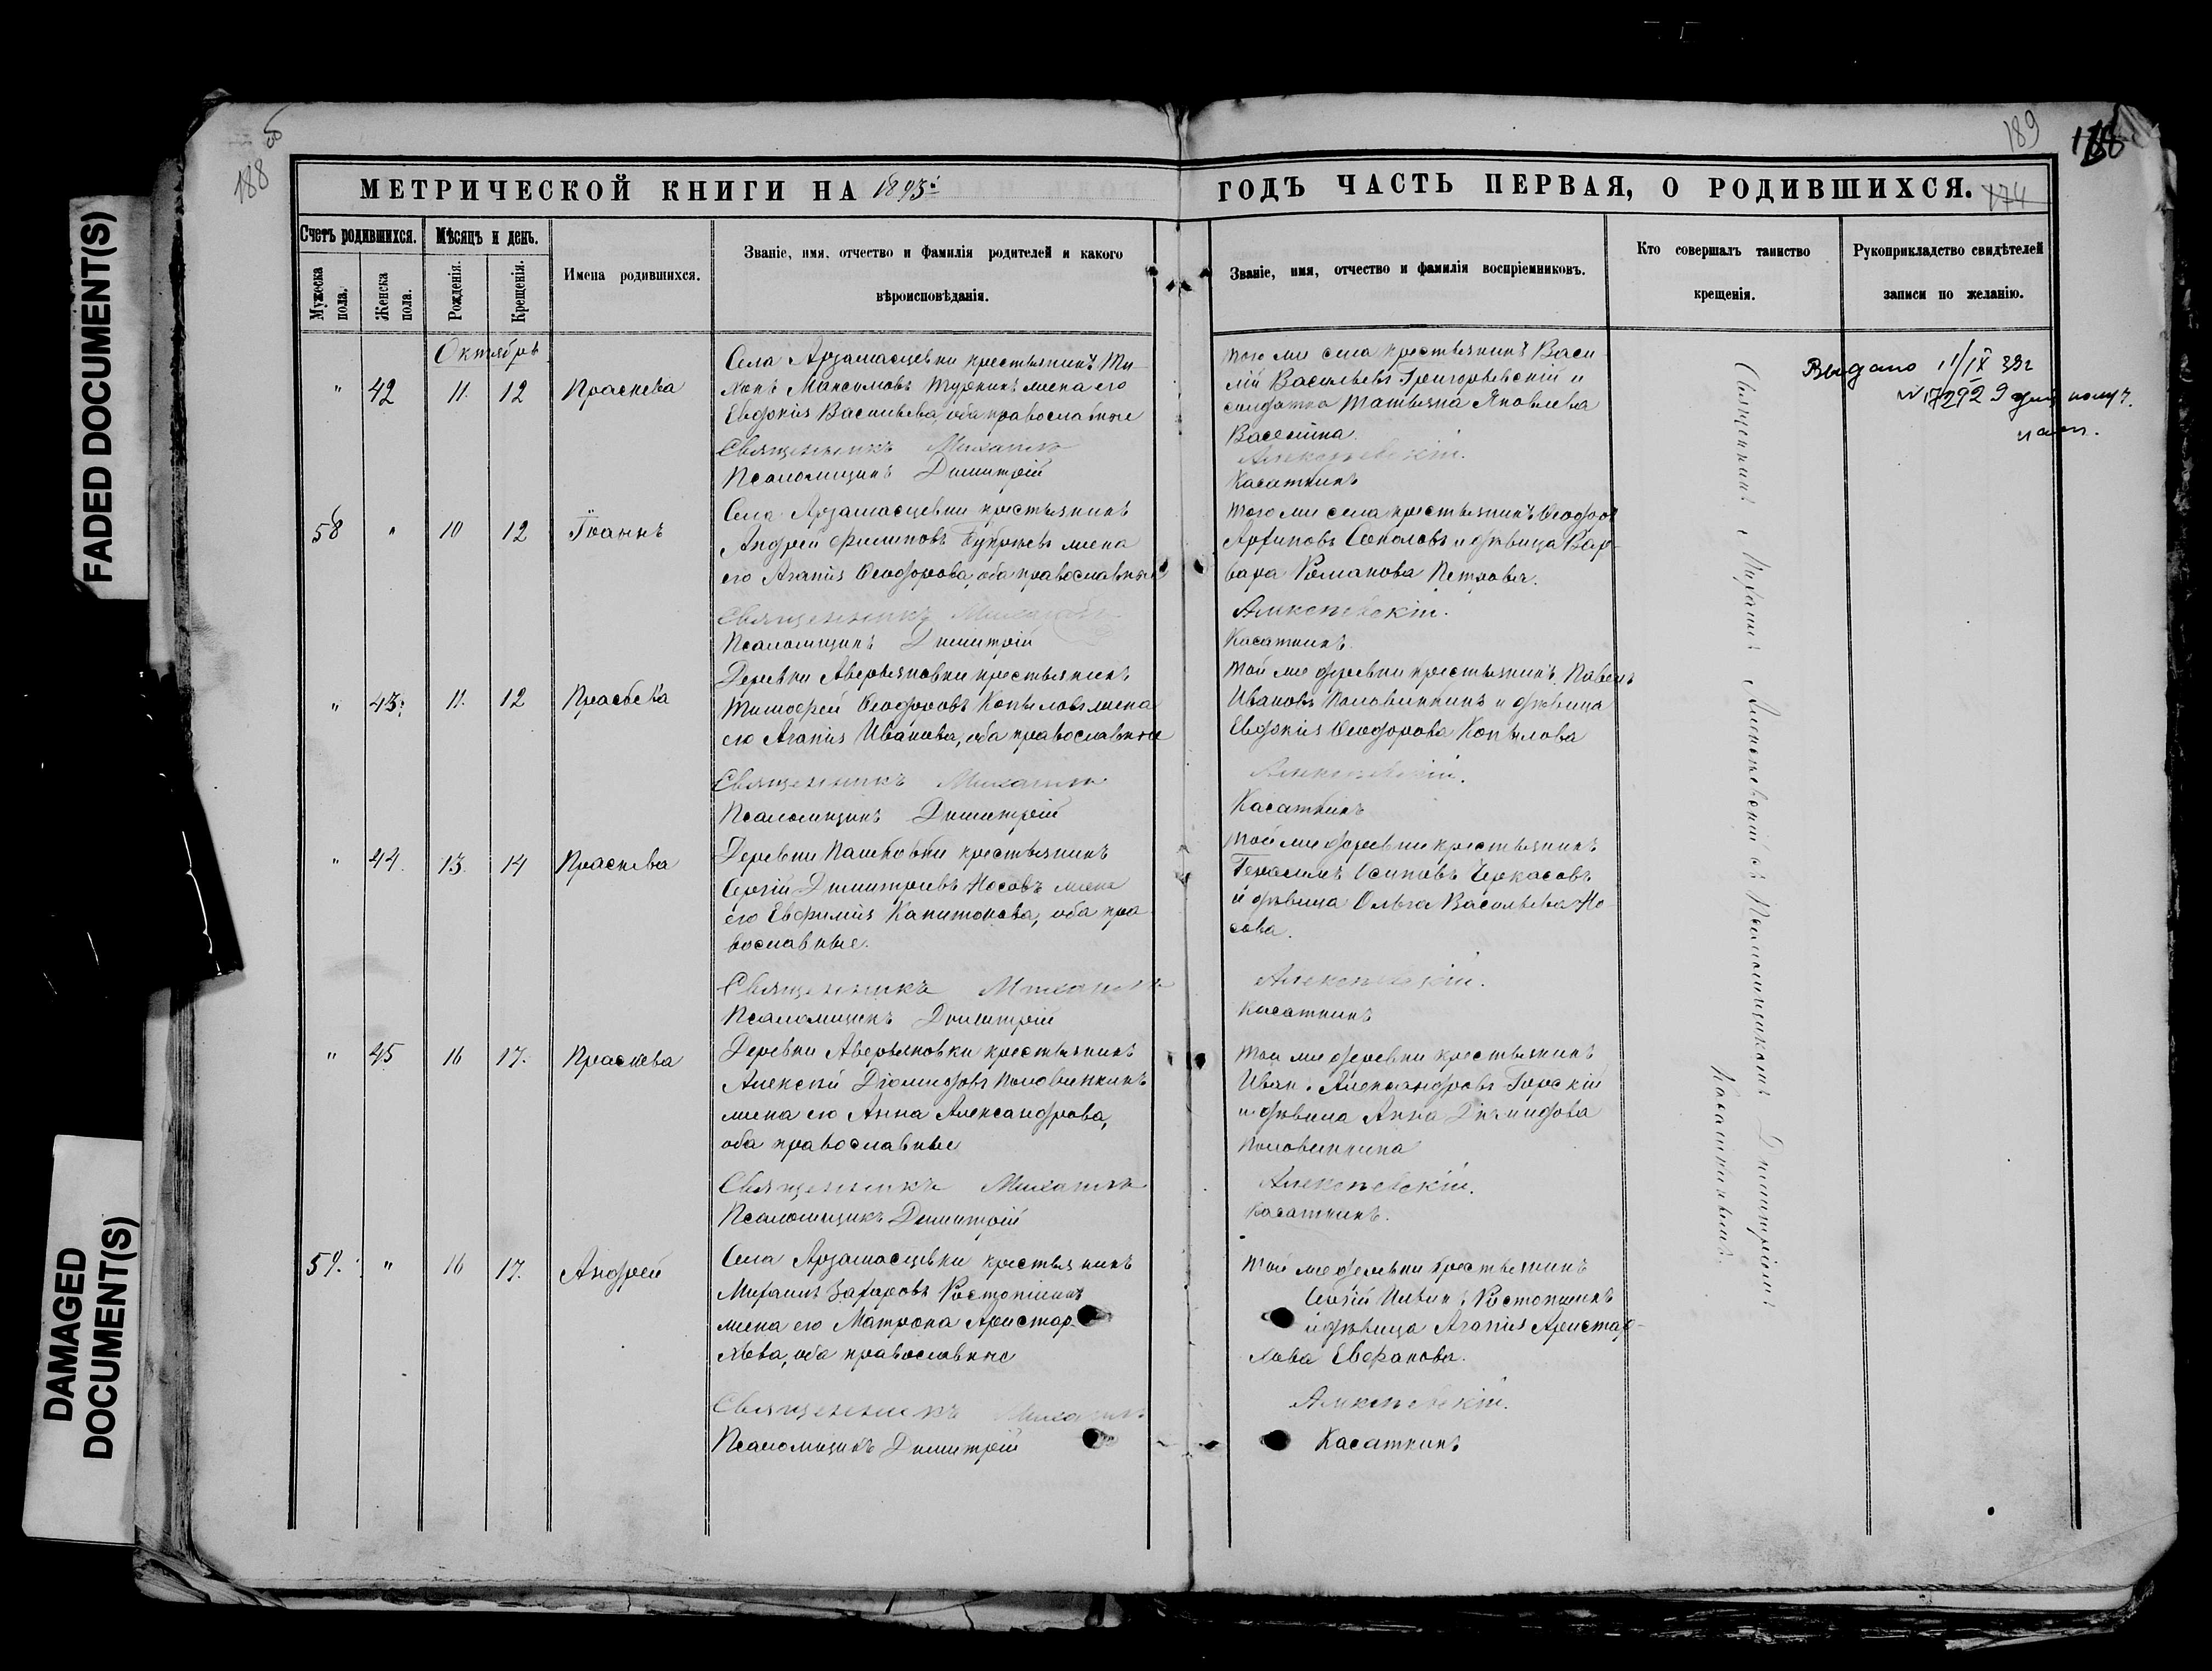 188 об
189
188
МЕТРИЧЕСКОЙ КНИГИ НА 1895
ГОДЪ ЧАСТЬ ПЕРВАЯ, О РОДИВШИХСЯ.
174
Счетъ родившихся.
Мужеска пола.
Женска пола.
Мѣсяцъ и день.
Рожденія.
Крещенія.
Имена родившихся.
Званіе, имя, отчество и фамилія родителей и какого
вѣроисповѣданія.
Званіе, имя, отчество и фамилія воспріемниковъ.
Кто совершалъ таинство
крещенія.
Рукоприкладство свидѣтелей
записи по желанію.
Октябрь
" 42 11. 12 Праскева
Села Арзамасцевки крестьянинъ Ти-
хонъ Максимовъ жена его
Евдокія Васильева, оба православные
Священникъ Михаилъ
Псаломщикъ Димитрій
того же села крестьянинъ Васи
лій Васильевъ Григорьевскій и
солдатка Татьяна Яковлева
Васенина.
Алексѣевскій.
Касаткинъ
Выдано 11/IX 39г
58 " 10 12 Іоаннъ
Села Арзамасцевки крестьянинъ
Андрей Филиповъ жена
его Агапія Ѳеодорова, оба православные
Священникъ Михаилъ
Псаломщикъ Димитрій
того же села крестьянинъ Ѳеодоръ
Архиповъ Соколовъ и дѣвица Вар-
вара Романова Петрова.
Алексѣевскій.
Касаткинъ.
" 43. 11. 12 Праскева
Деревни Аверьяновки крестьянинъ
Тимофей Ѳеодоровъ Копыловъ жена
его Агапія Иванова, оба православные
Священникъ Михаилъ
Псаломщикъ Димитрій
той же деревни крестьянинъ Павелъ
Ивановъ Половинкинъ и дѣвица
Евдокія Ѳеодорова Копылова
Алексѣевскій.
Касаткинъ
" 44. 13. 14 Праскева
Деревни Пашковки крестьянинъ
Сергій Димитріевъ Носовъ жена
его Евфимія Капитонова, оба пра
вославные.
Священникъ Михаилъ
Псаломщикъ Димитрій
той же деревни крестьянинъ
Герасимъ Осиповъ Черкасовъ
и дѣвица Ольга Васильева Но
сова.
Алексѣевскій.
Касаткинъ
" 45 16 17. Праскева
Деревни Аверьяновки крестьянинъ
Алексѣй Діомидовъ Половинкинъ
жена его Анна Александрова,
оба православные
Священникъ Михаилъ
Псаломщикъ Димитрій
той же деревни крестьянинъ
Иванъ Александровъ Горскій
и дѣвица Анна Діомидова
Половинкина
Алексѣевскій.
Касаткинъ.
59. " 16 17. Андрей
Села Арзамасцевки крестьянинъ
Михаилъ Захаровъ Ростопшинъ
жена его Матрона Аристар-
хова, оба православные
Священникъ Михаилъ
Псаломщикъ Димитрій
той же деревни крестьянинъ
Сергій Ростопшинъ
и дѣвица Агапія Аристар-
хова
Алексѣевскій.
Касаткинъ
Священникъ Михаилъ Алексѣевскій съ Псаломщикомъ Димитріемъ
Касаткинымъ.
FADED DOCUMENT(S)
DAMAGED
DOCUMENT(S)